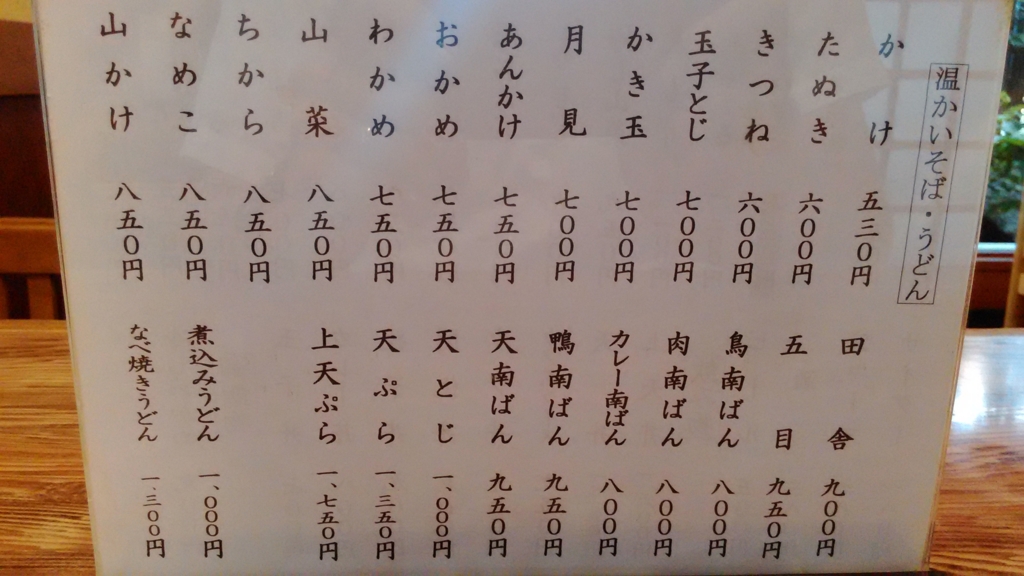 温かいそば・うどん
かけ 五三〇円
たぬき 六〇〇円
きつね 六〇〇円
玉子とじ 七〇〇円
かき玉 七〇〇円
月見 七〇〇円
あんかけ 七五〇円
おかめ 七五〇円
わかめ 七五〇円
山菜 八五〇円
ちから 八五〇円
なめこ 八五〇円
山かけ 八五〇円
田舎 九〇〇円
五目 九五〇円
鳥南ばん 八〇〇円
肉南ばん 八〇〇円
カレー南ばん 八〇〇円
鴨南ばん 九五〇円
天南ばん 九五〇円
天とじ 一、〇〇〇円
天ぷら 一、三五〇円
上天ぷら 一、七五〇円
煮込みうどん 一、〇〇〇円
なべ焼きうどん 一、三〇〇円